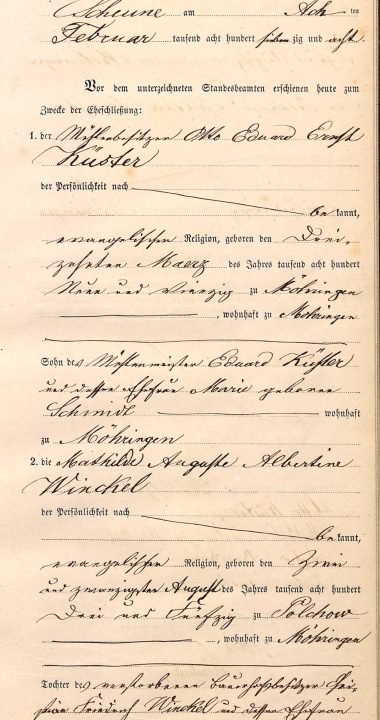 Scheune am Ach ten
Februar tausend acht hundert sieben zig und acht.
Vor dem unterzeichneten Standesbeamten erschienen heute zum
Zwecke der Eheschließung:
1. der Mühlenbesitzer Otto Eduard Ernst
Küster
der Persönlichkeit nach
be kannt,
evangelischer Religion, geboren den Drei-
zehnten Maerz des Jahres tausend acht hundert
Neun und Vierzig zu Möhringen
, wohnhaft zu Möhringen
Sohn des Mühlenmeister Eduard Küster
und dessen Ehefrau Marie geborene
Schmidt wohnhaft
zu Möhringen
2. die Mathilde Auguste Albertine
Winckel
der Persönlichkeit nach
be kannt,
evangelischer Religion, geboren den Zwei
und zwanzigsten August des Jahres tausend acht hundert
Drei und Fünfzig zu Polchow
, wohnhaft zu Möhringen
Tochter des verstorbenen Bauerhofsbesitzer Chri-
stian Friedrich Winckel und dessen Ehefrau